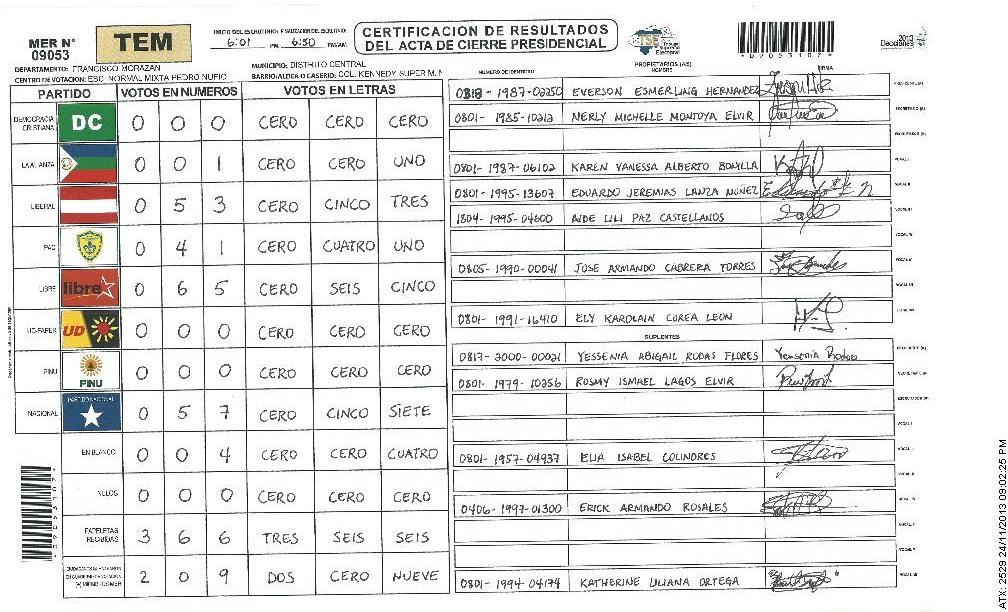 MER N° 09053
TEM
INICIO DEL ESCRUTINIO: FINALIZACION DEL ESCRUTINIO:
6:01 PM 6:50 PM/AM
CERTIFICACION DE RESULTADOS
DEL ACTA DE CIERRE PRESIDENCIAL
TSE Tribunal Supremo Electoral
*09053107*
2013 Elecciones
DEPARTAMENTO: FRANCISCO MORAZAN
MUNICIPIO: DISTRITO CENTRAL
CENTRO DE VOTACION: ESC. NORMAL MIXTA PEDRO NUFIO
BARRIO/ALDEA O CASERIO: COL. KENNEDY SUPER M.
PARTIDO VOTOS EN NUMEROS VOTOS EN LETRAS
DEMOCRACIA CRISTIANA DC 0 0 0 CERO CERO CERO
LA ALIANZA 0 0 1 CERO CERO UNO
LIBERAL 0 5 3 CERO CINCO TRES
PAC 0 4 1 CERO CUATRO UNO
LIBRE libre 0 6 5 CERO SEIS CINCO
UD-FAPER UD 0 0 0 CERO CERO CERO
PINU PINU 0 0 0 CERO CERO CERO
NACIONAL PARTIDO NACIONAL 0 5 7 CERO CINCO SIETE
EN BLANCO 0 0 4 CERO CERO CUATRO
NULOS 0 0 0 CERO CERO CERO
PAPELETAS RECIBIDAS 3 6 6 TRES SEIS SEIS
2 0 9 DOS CERO NUEVE
PROPIETARIOS (AS)
NUMERO DE IDENTIDAD NOMBRE FIRMA
0818-1987-00250 EVERSON ESMERLING HERNANDEZ
0801-1985-10213 NERLY MICHELLE MONTOYA ELVIR SECRETARIO (A)
ESCRUTADOR (A)
0801-1987-06102 KAREN VANESSA ALBERTO BONILLA VOCAL I
0801-1995-13607 EDUARDO JEREMIAS LANZA NUÑEZ VOCAL II
1804-1995-04600 AIDE LILI PAZ CASTELLANOS VOCAL III
VOCAL IV
0805-1990-00041 JOSE ARMANDO CABRERA TORRES VOCAL V
VOCAL VI
0801-1991-16410 ELY KAROLAIN COREA LEON
SUPLENTES
0817-2000-00021 YESSENIA ABIGAIL RODAS FLORES Yessenia Rodas
0801-1979-10256 ROSMY ISMAEL LAGOS ELVIR SECRETARIO (A)
ESCRUTADOR (A)
VOCAL I
0801-1957-04937 ELIA ISABEL COLINDRES
0406-1997-01300 ERICK ARMANDO ROSALES
0801-1994-04174 KATHERINE LILIANA ORTEGA
*09053107*
ATX: 2529 24/11/2013 09:02:25 PM